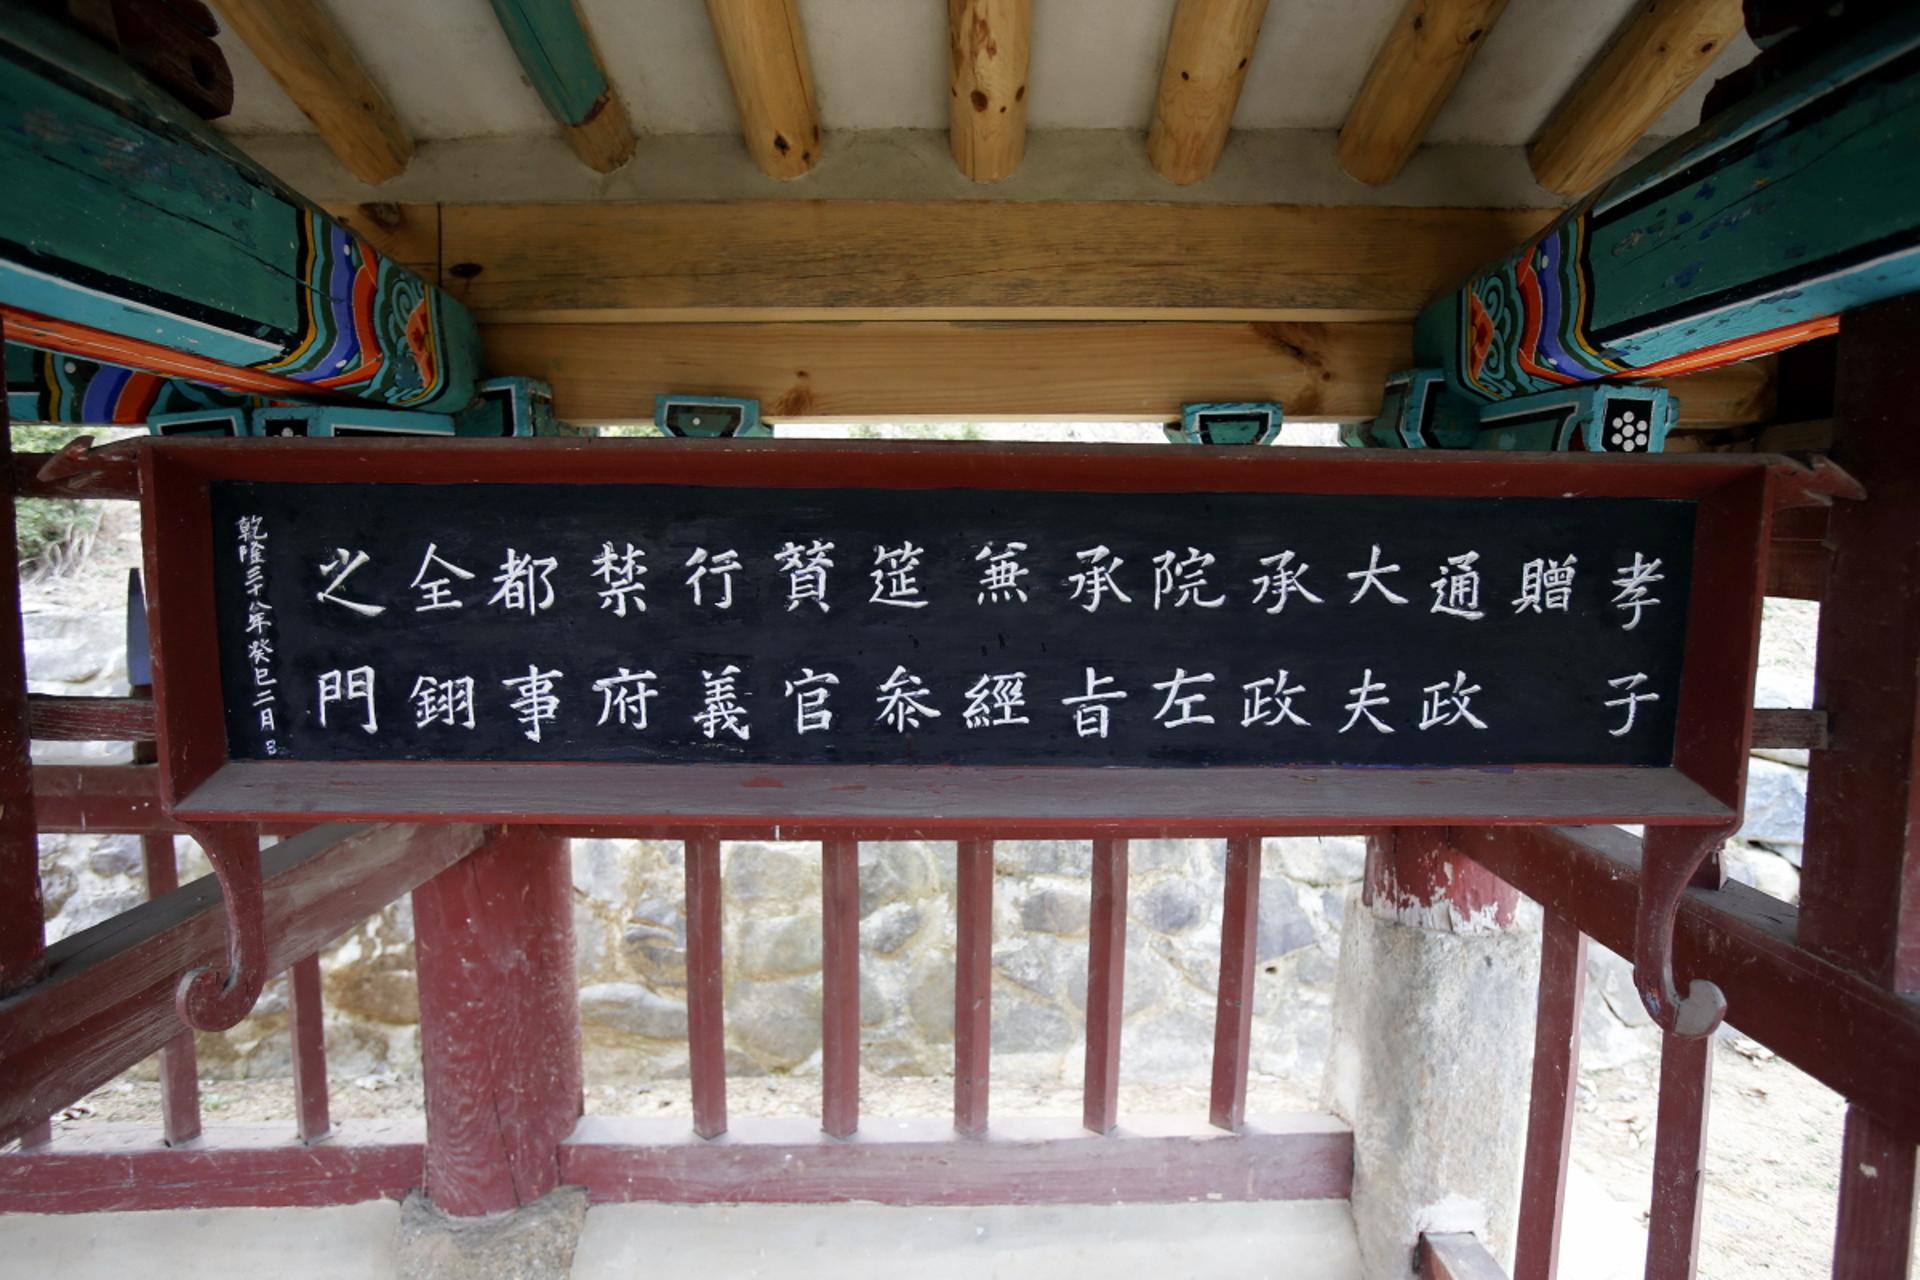 孝子
贈
通政
大夫
承政
院左
承旨
兼經
筵叅
賛官
行義
禁府
都事
全
之門
乾隆三十八年癸巳二月 日